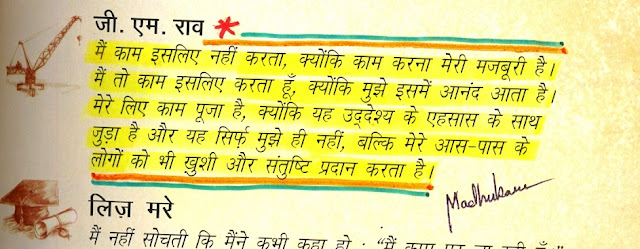 जी. एम. राव
मैं काम इसलिए नहीं करता, क्योंकि काम करना मेरी मजबूरी है।
मैं तो काम इसलिए करता हूँ, क्योंकि मुझे इसमें आनंद आता है।
मेरे लिए काम पूजा है, क्योंकि यह उद्देश्य के एहसास के साथ
जुड़ा है और यह सिर्फ मुझे ही नहीं, बल्कि मेरे आस-पास के
लोगों को भी खुशी और संतुष्टि प्रदान करता है।
लिज़ मरे
मैं नहीं सोचती कि मैंने कभी कहा हो : "मैं काम पर जा रही हूँ।"